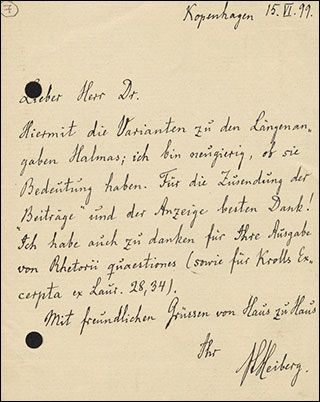 7
Kopenhagen 15. VI. 99.
Lieber Herr Dr.
Hiermit die Varianten zu den Längenan-
gaben Halmas; ich bin neugierig, ob sie
Bedeutung haben. Für die Zusendung der
"Beiträge" und der Anzeige besten Dank!
Ich habe auch zu danken für Ihre Ausgabe
von Rhetorii quaestiones (sowie für Krolls Ex-
cerpta ex Laur. 28, 34).
Mit freundlichen Grüssen von Haus zu Haus
Ihr
Heiberg.